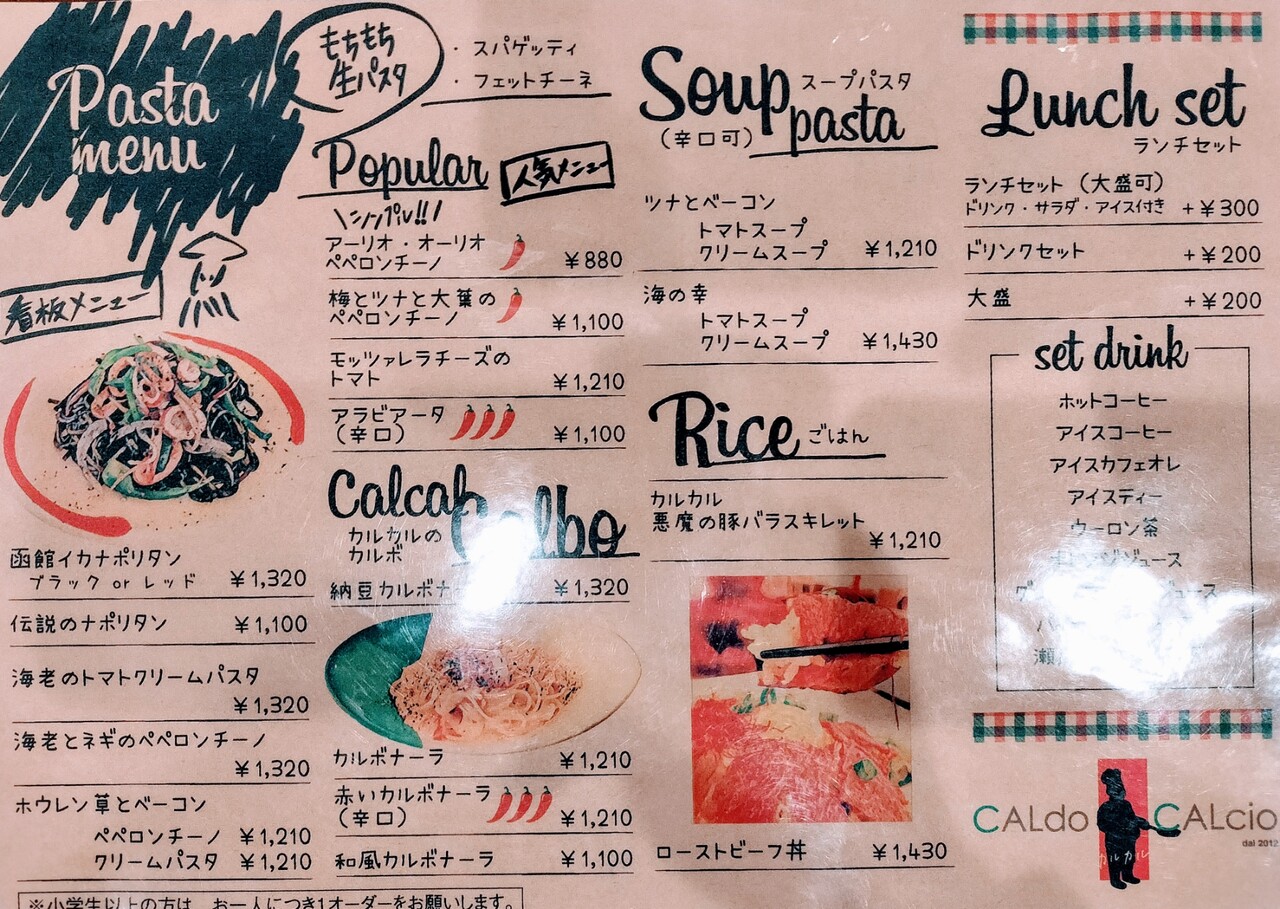 Pasta
menu
看板メニュー
函館イカナポリタン
ブラック or レッド ¥1,320
伝説のナポリタン ¥1,100
海老のトマトクリームパスタ
¥1,320
海老とネギのペペロンチーノ
¥1,320
ホウレン草とベーコン
ペペロンチーノ ¥1,210
クリームパスタ ¥1,210
※小学生以上の方は、お一人につき1オーダーをお願いします。
もちもち
生パスタ
・スパゲッティ
・フェットチーネ
Popular 人気メニュー
\シンプル!!/
アーリオ・オーリオ
ペペロンチーノ ¥880
梅とツナと大葉の
ペペロンチーノ ¥1,100
モッツァレラチーズの
トマト ¥1,210
アラビアータ
(辛口) ¥1,100
Calcal
Calbo
カルカルの
カルボ
納豆カルボナーラ ¥1,320
カルボナーラ ¥1,210
赤いカルボナーラ
(辛口) ¥1,210
和風カルボナーラ ¥1,100
Soup スープパスタ
(辛口可) pasta
ツナとベーコン
トマトスープ
クリームスープ ¥1,210
海の幸
トマトスープ
クリームスープ ¥1,430
Rice ごはん
カルカル
悪魔の豚バラスキレット
¥1,210
ローストビーフ丼 ¥1,430
Lunch set
ランチセット
ランチセット (大盛可)
ドリンク・サラダ・アイス付き +¥300
ドリンクセット +¥200
大盛 +¥200
set drink
ホットコーヒー
アイスコーヒー
アイスカフェオレ
アイスティー
ウーロン茶
オレンジジュース
CALdo CALcio
dal 2012
カルカル